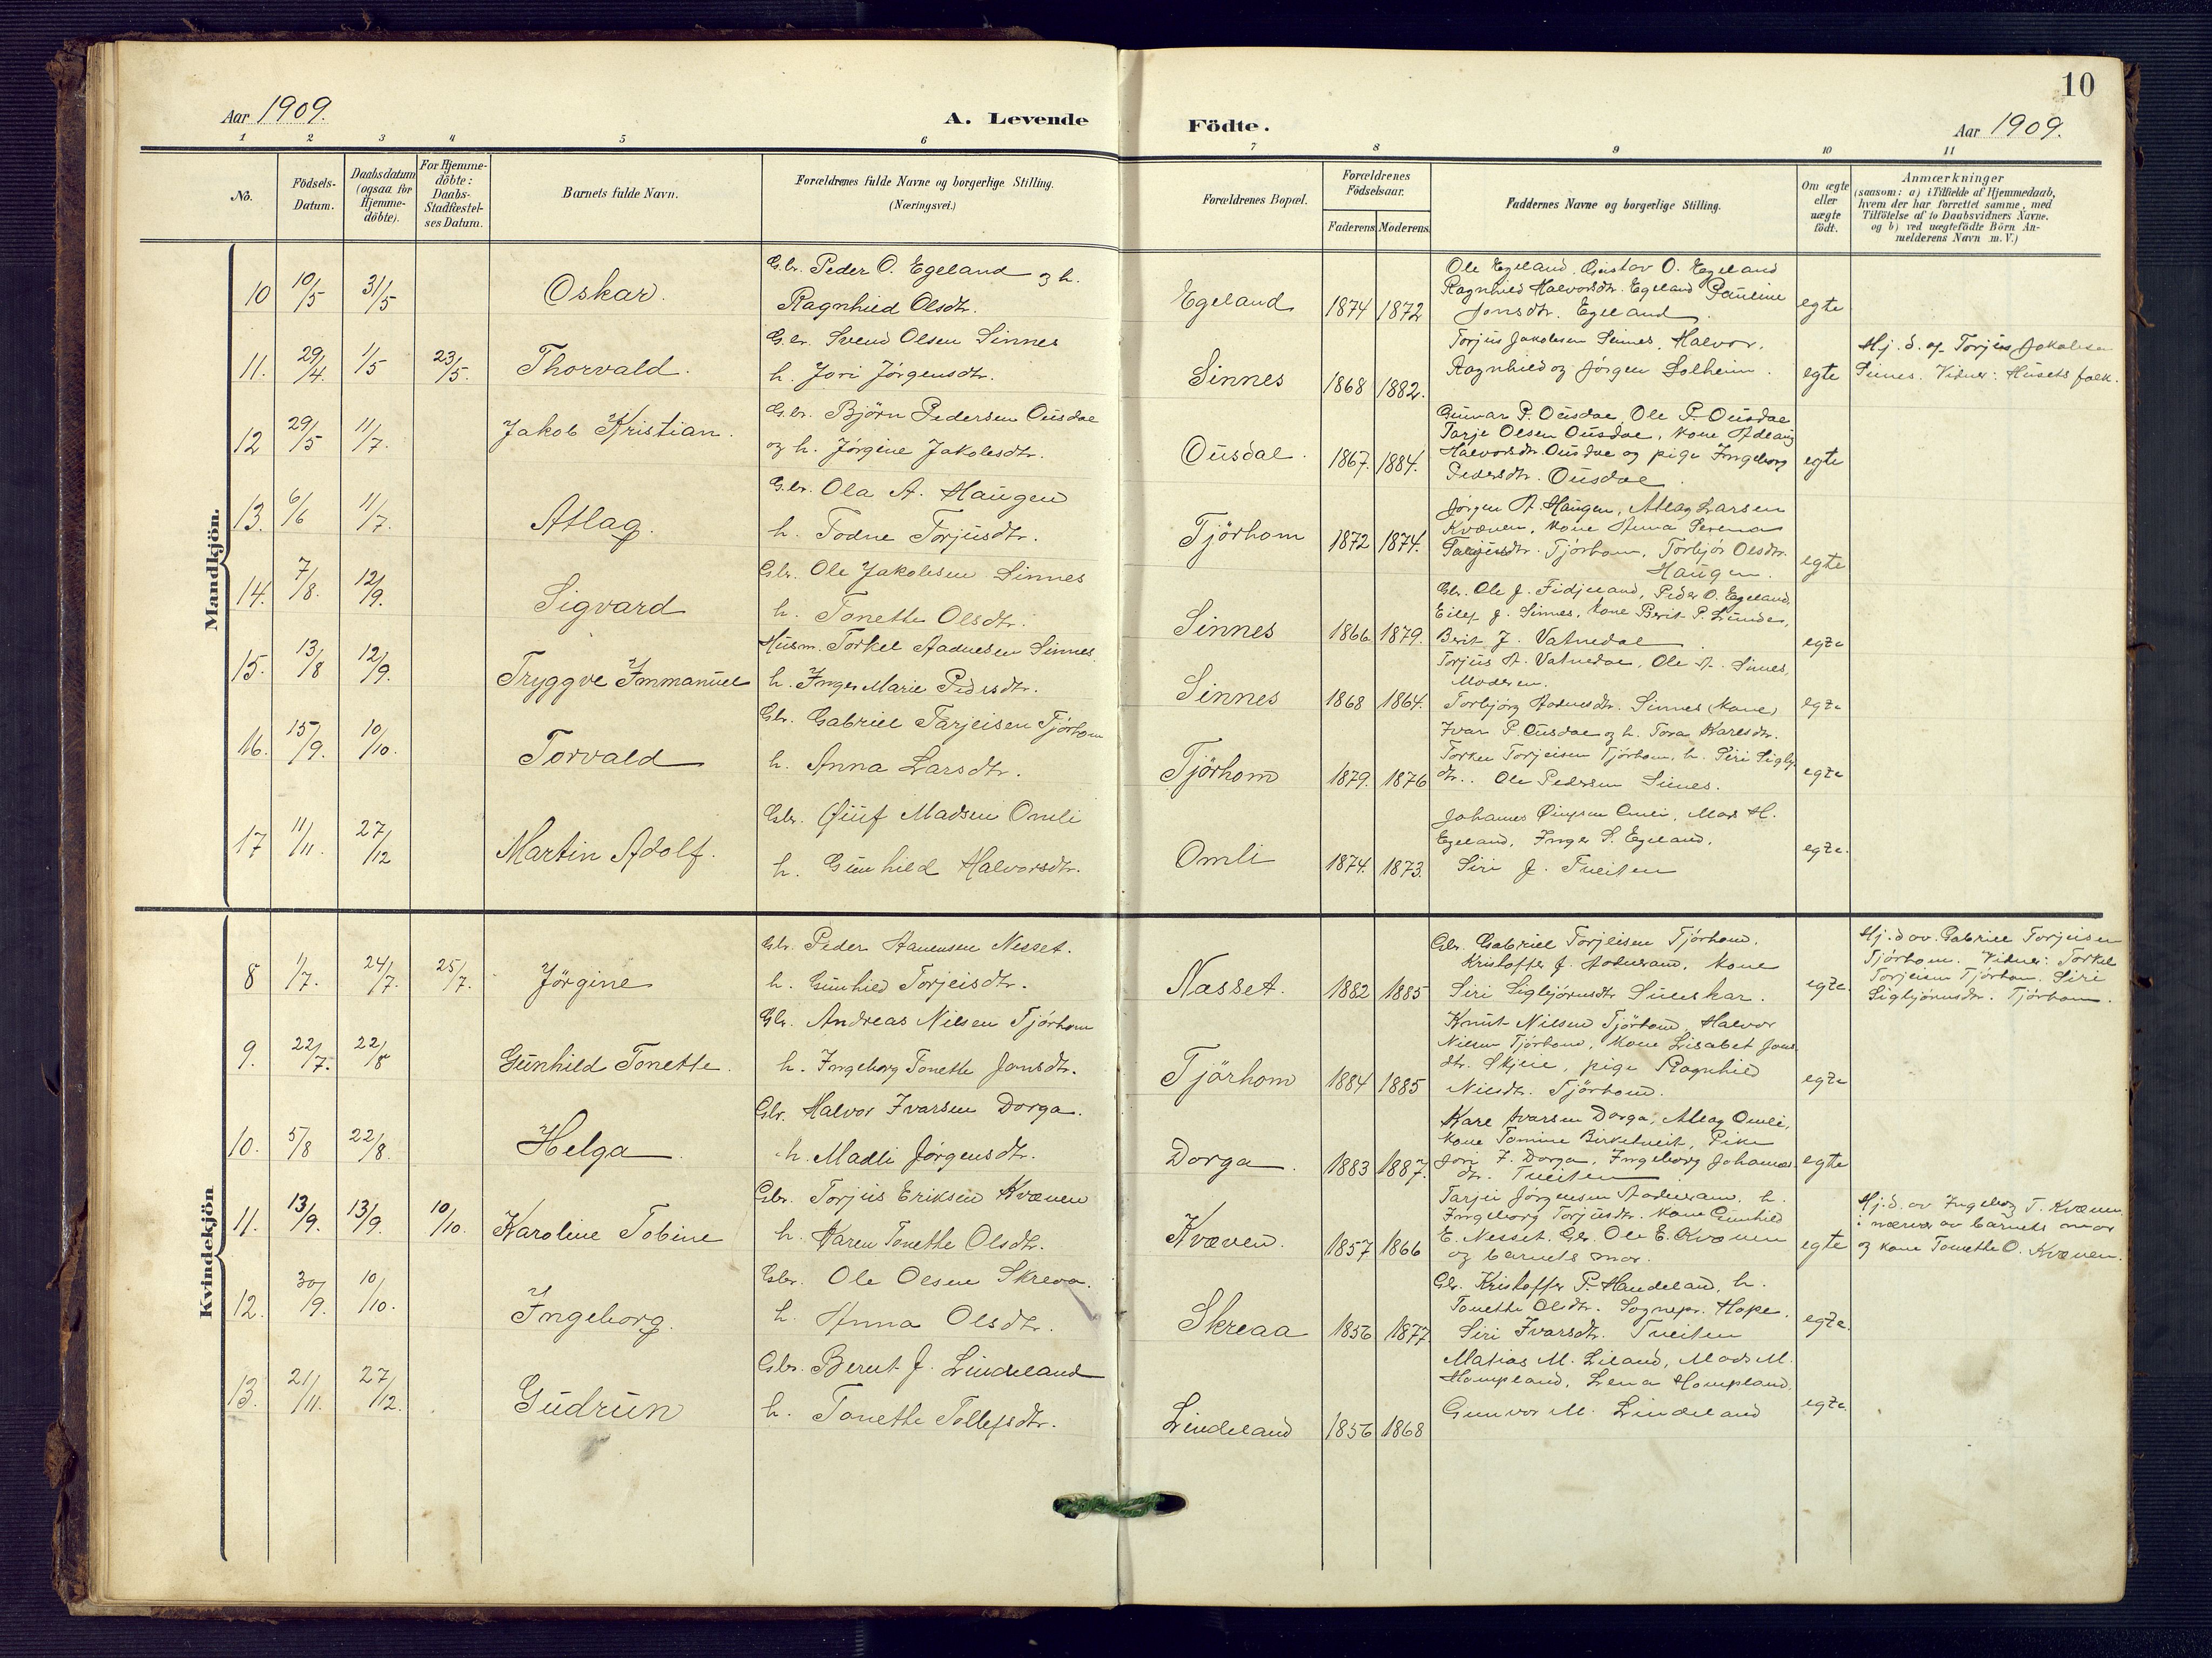 10
Aar 1909.
A. Levende Födte.
Aar 1909.
1 2 3 4 5 6 7 8 9 10 11
No.
Födsels-Datum.
Daabsdatum (ogsaa for Hjemme-döbte).
For Hjemme-döbte: Daabs-Stadfæstel-ses Datum.
Barnets fulde Navn.
Forældrenes fulde Navne og borgerlige Stilling.
(Næringsvei.)
Forældrenes Bopæl.
Forældrenes Födselsaar.
Faderens Moderens
Faddernes Navne og borgerlige Stilling.
Om ægte eller uægte födt.
Anmærkninger
(saasom: a) i Tilfælde af Hjemmedaab,
hvem der har forrettet samme, med
Tilföielse af to Daabsvidners Navne.
og b) ved uægtefödte Börn An-
melderens Navn m. V.)
Mandkjön.
10 10/5 31/5 Oskar.
Gbr. Peder O. Egeland og h.
Ragnhild Olsdtr.
Egeland 1874 1872
Ole Egeland, Gustav O. Egeland
Ragnhild Halvorsdtr. Egeland Pauline
Jonsdtr. Egeland.
egte
11. 29/4. 1/5 23/5. Thorvald.
Gbr. Svend Olsen Sinnes
h. Jori Jörgensdtr.
Sinnes 1868 1882.
Torjus Jakobsen Sinnes, Halvor,
Ragnhild og Jörgen Solheim.
egte
Hj. d. af Torjus Jakobsen
Sinnes. Vidner: Husets folk.
12 29/5 11/7. Jakob Kristian.
Gbr. Björn Pedersen Ousdal
og h. Jörgine Jakobsdtr.
Ousdal. 1867. 1884.
Gunnar P. Ousdal, Ole P. Ousdal
Tarje Olsen Ousdal, kone Adelaug
Halvorsdtr. Ousdal og pige Ingeborg
Pedersdtr. Ousdal.
egte
13. 6/6 11/7. Atlag.
Gbr. Ola A. Haugen
h. Todne Torjusdtr.
Tjörhom 1872 1874.
Jörgen A. Haugen, Atlag Larsen
Kvæven, kone Anna Serena
Tarjeisdtr. Tjörhom, Torbjör Olsdtr.
Haugen.
egte
14. 7/8. 12/9. Sigvard
Gbr. Ole Jakobsen Sinnes
h. Tonette Olsdtr.
Sinnes 1866 1879.
Gbr. Ole J. Fidjeland, Peder O. Egeland,
Eilef J. Sinnes, kone Berit P. Lunde,
Berit J. Vatnedal.
egte
15. 13/8 12/9. Tryggve Immanuel
Husm. Torkel Aadnesen Sinnes.
h. Inger Marie Pedersdtr.
Sinnes 1868 1864.
Torjus A. Vatnedal, Ole A. Sinnes,
Moderen.
Torbjörg Aadnesdtr. Sinnes (kone)
egte
16. 15/9. 10/10. Torvald
Gbr. Gabriel Tarjeisen Tjörhom
h. Anna Larsdtr.
Tjörhom 1879. 1876
Ivar P. Ousdal og h. Tora Karesdtr.
Torkel Torjeisen Tjörhom, h. Siri Sigbj.
dtr. Ole Pedersen Sinnes.
egte
17 11/11. 27/12 Martin Adolf.
Gbr. Öiuf Madsen Omli
h. Gunhild Halvorsdtr.
Omli 1874. 1873.
Johannes Omli, Mads H.
Egeland, Inger S. Egeland,
Siri J. Tveiten
egte.
Kvindekjön
8 1/7. 24/7. 25/7. Jörgine
Gbr. Peder Nesset.
h. Gunhild Torjeisdtr.
Nesset. 1882 1885
Gbr. Gabriel Torjeisen Tjörhom.
Kristoffer J. kone
Siri Sigbjörnsdtr Suleskar.
egte.
Hj. d av. Gabriel Torjeisen
Tjörhom. Vidner: Torkel
Torjeisen Tjörhom. Siri
Sigbjörnsdtr. Tjörhom.
9. 22/7. 22/8 Gunhild Tonette.
Gbr. Andreas Nilsen Tjörhom
h. Ingeborg Tonette Jonsdtr.
Tjörhom 1884 1885
Knut Nilsen Tjörhom, Halvor
Nilsen Tjörhom, kone Lisabet Jons
dtr. Skjeie, pige Ragnhild
Nilsdtr. Tjörhom.
egte
10. 5/8 22/8. Helga.
Gbr. Halvor Ivarsen Dorga.
h. Madli Jörgensdtr.
Dorga. 1883 1887.
Kare Ivarsen Dorga, Atlag Omli,
kone Tomine Birketveit, Pike
Jori I. Dorga, Ingeborg Johannes
dtr. Tveiten
egte
11. 13/9. 13/9. 10/10. Karoline Tobine
Gbr. Torjus Eriksen Kvæven
h. Karen Tonethe Olsdtr.
Kvæven. 1857 1866
Tarjei Jörgensen h.
Ingeborg Torjusdtr. kone Gunhild
E. Nesset. Gbr. Ole E. Kvæven
og barnets mor.
egte
Hj. d. av Ingeborg T. Kvæven
i nærvær av barnets
og kone Tonethe O. Kvæven.
12. 30/9. 10/10. Ingeborg.
Gbr. Ole Olsen Skreaa.
h. Anna Olsdtr.
Skreaa 1856 1877
Gbr. Kristoffer P. Haudeland, h.
Tonethe Olsdtr. Sognepr. Hope.
Siri Ivarsdtr. Tveiten
egte.
13. 21/11. 27/12. Gudrun
Gbr. Berut J. Lindeland
h. Tonethe Tollefsdtr.
Lindeland 1856 1868
Matias M. Liland, Mads M.
Hompland, Lena Hompland.
Gunvor M. Lindeland
egte.